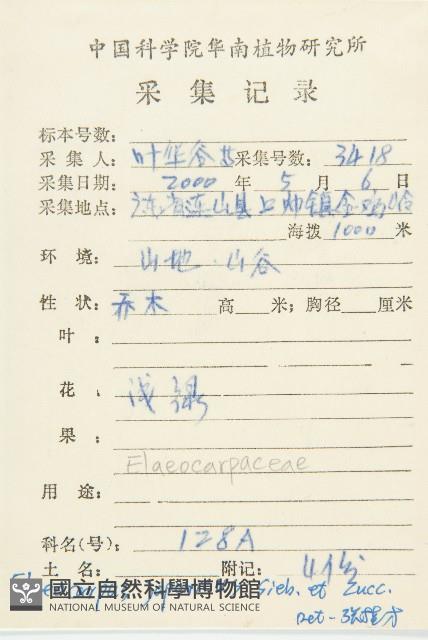 中国科学院华南植物研究所
采集记录
标本号数：
采集人：叶华谷等 采集号数：3418
采集日期：2000年5月6日
采集地点：广东省连山县上帅镇
海拨1000米
环境：山地．山谷
性状：乔木 高 米；胸径 厘米
叶：
花：浅绿
果：
Elaeocarpaceae
用途：
科名(号)：128A
土名： 附记：4份
Sieb. et Zucc.
國立自然科學博物館
NATIONAL MUSEUM OF NATURAL SCIENCE
Det-